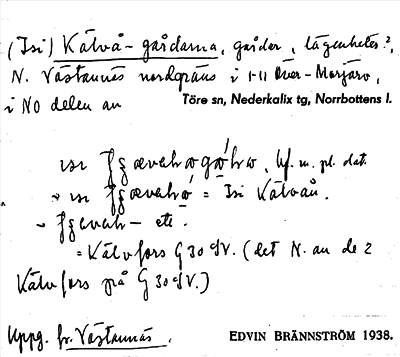 (Isi) Kälvå-gårdarna, gårder, lägenheter?,
N. Västannäs nordgräns i 1-11 Över-Morjärv,
i NO delen av Töre sn, Nederkalix tg, Norrbottens l.
bf. m. pl. dat.
= Isi Kälvån.
etc.
= Kälvfors G 30 SV. (det N. av de 2
Kälvfors på G 30 SV.)
Uppg. fr. Västannäs. EDVIN BRÄNNSTRÖM 1938.